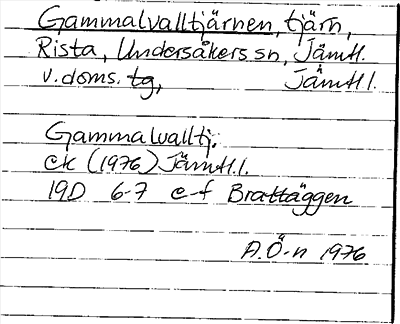 Gammalvalltjärnen, tjärn,
Rista, Undersåkers sn, Jämtl.
v. doms. tg, Jämtl l.
Gammalvalltj.
ek (1976) Jämtl. l.
19D 6-7 e-f Brattäggen
A.Ö-n 1976